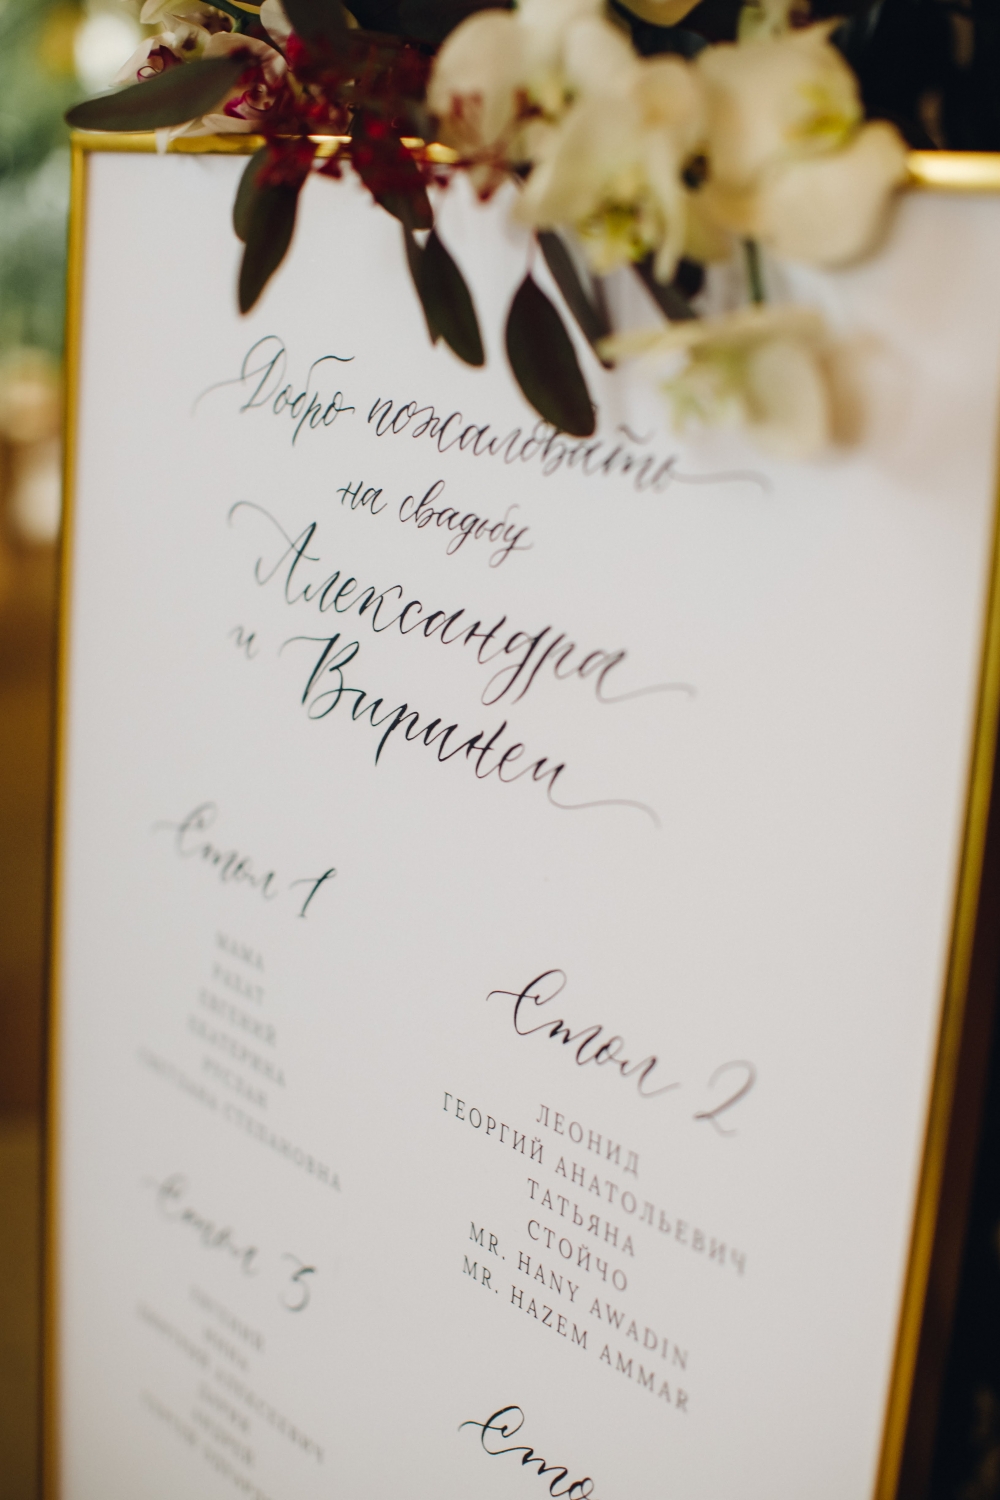 Добро пожаловать
на свадьбу
Александра
и Виринеи
Стол 1
МАМА
РАХАТ
ЕВГЕНИЙ
ЕКАТЕРИНА
РУСЛАН
СВЕТЛАНА СТЕПАНОВНА
Стол 2
ЛЕОНИД
ГЕОРГИЙ АНАТОЛЬЕВИЧ
ТАТЬЯНА
СТОЙЧО
MR. HANY AWADIN
MR. HAZEM AMMAR
Стол 3
АЛЕКСЕЕВИЧ
Сто